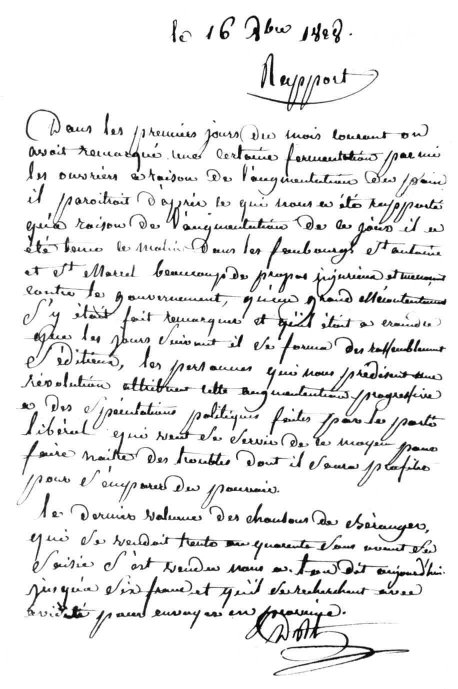 le 16 Xbre 1828.
Rappport
Dans les premiers jours du mois courant on
avait remarqué une certaine fermentation parmi
les ouvriers a raison de l'augmentation du pain
il paroitroit d'après ce qui nous a été rapporté
qu'a raison de l'augmentation de ce jour il a
été tenu ce matin dans les faubourgs St antoine
et St Marcel beaucoup de propos injurieux et menaçant
contre le gouvernement, qu'un grand Mécontentement
s'y était fait remarquer et qu'il était a craindre
que les jours suivant il se forma des rassemblement
séditieux, les personnes qui nous prédisent une
révolution attribuent cette augmentation progressive
a des spéculations politiques faites par le parti
libéral qui veut se servir de ce moyen pour
faire naitre des troubles dont il saura profiter
pour s'emparer du pouvoir.
le dernier volume des chansons de Béranger,
qui se vendait trente ou quarante sous avant sa
saisie s'est vendu nous a-t-on dit aujourd'hui
jusqu'a six franc et qu'il se recherchent avec
avidité pour envoyer en province.